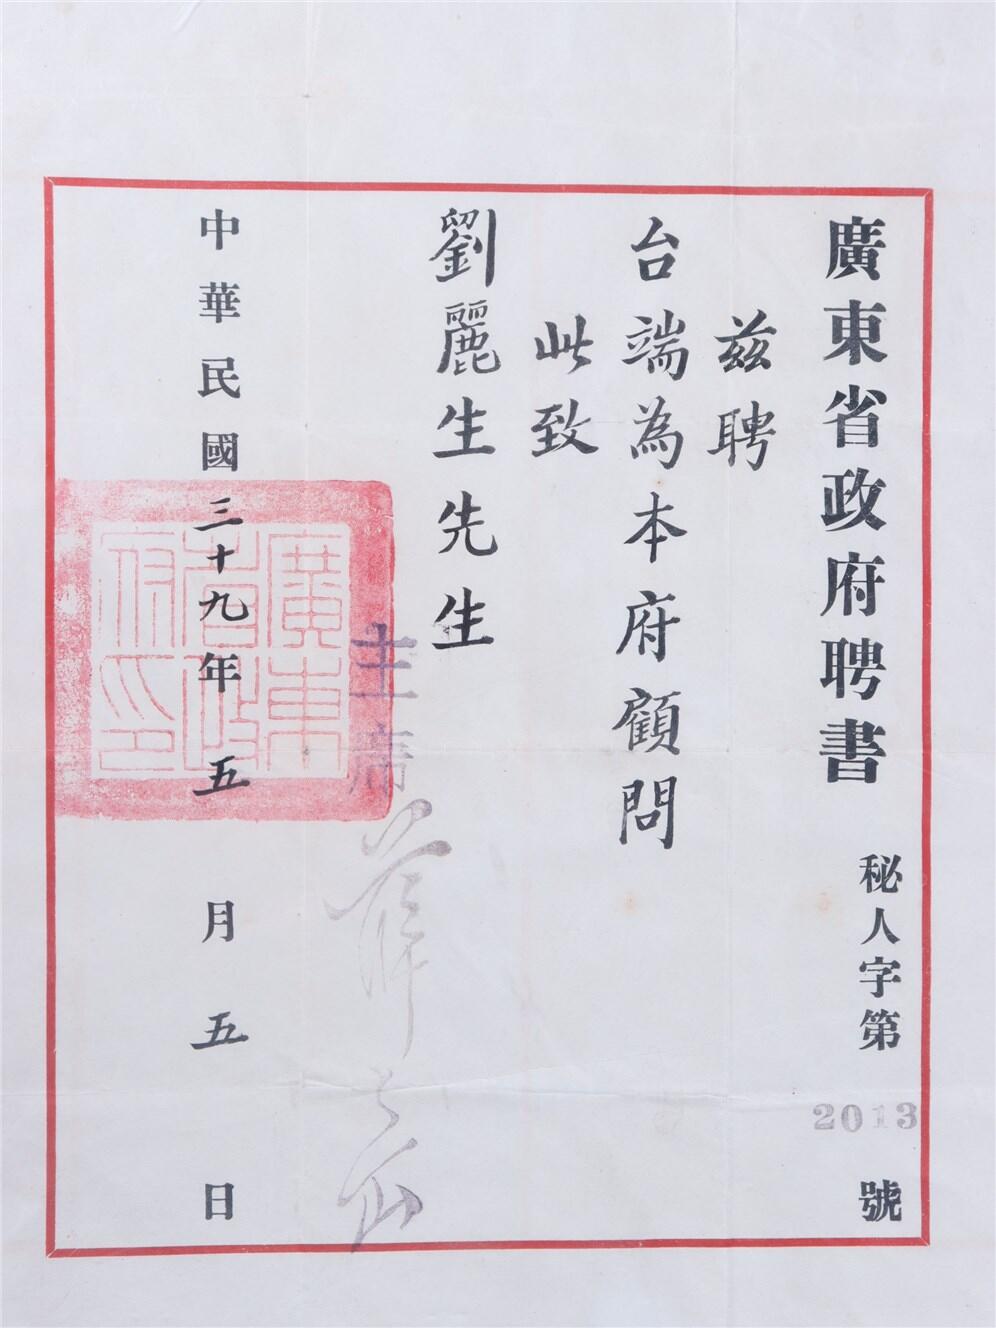 廣東省政府聘書
秘人字第2013號
茲聘
台端為本府顧問
此致
劉麗生先生
主席 薛岳
中華民國三十九年五月五日
廣東省政府印